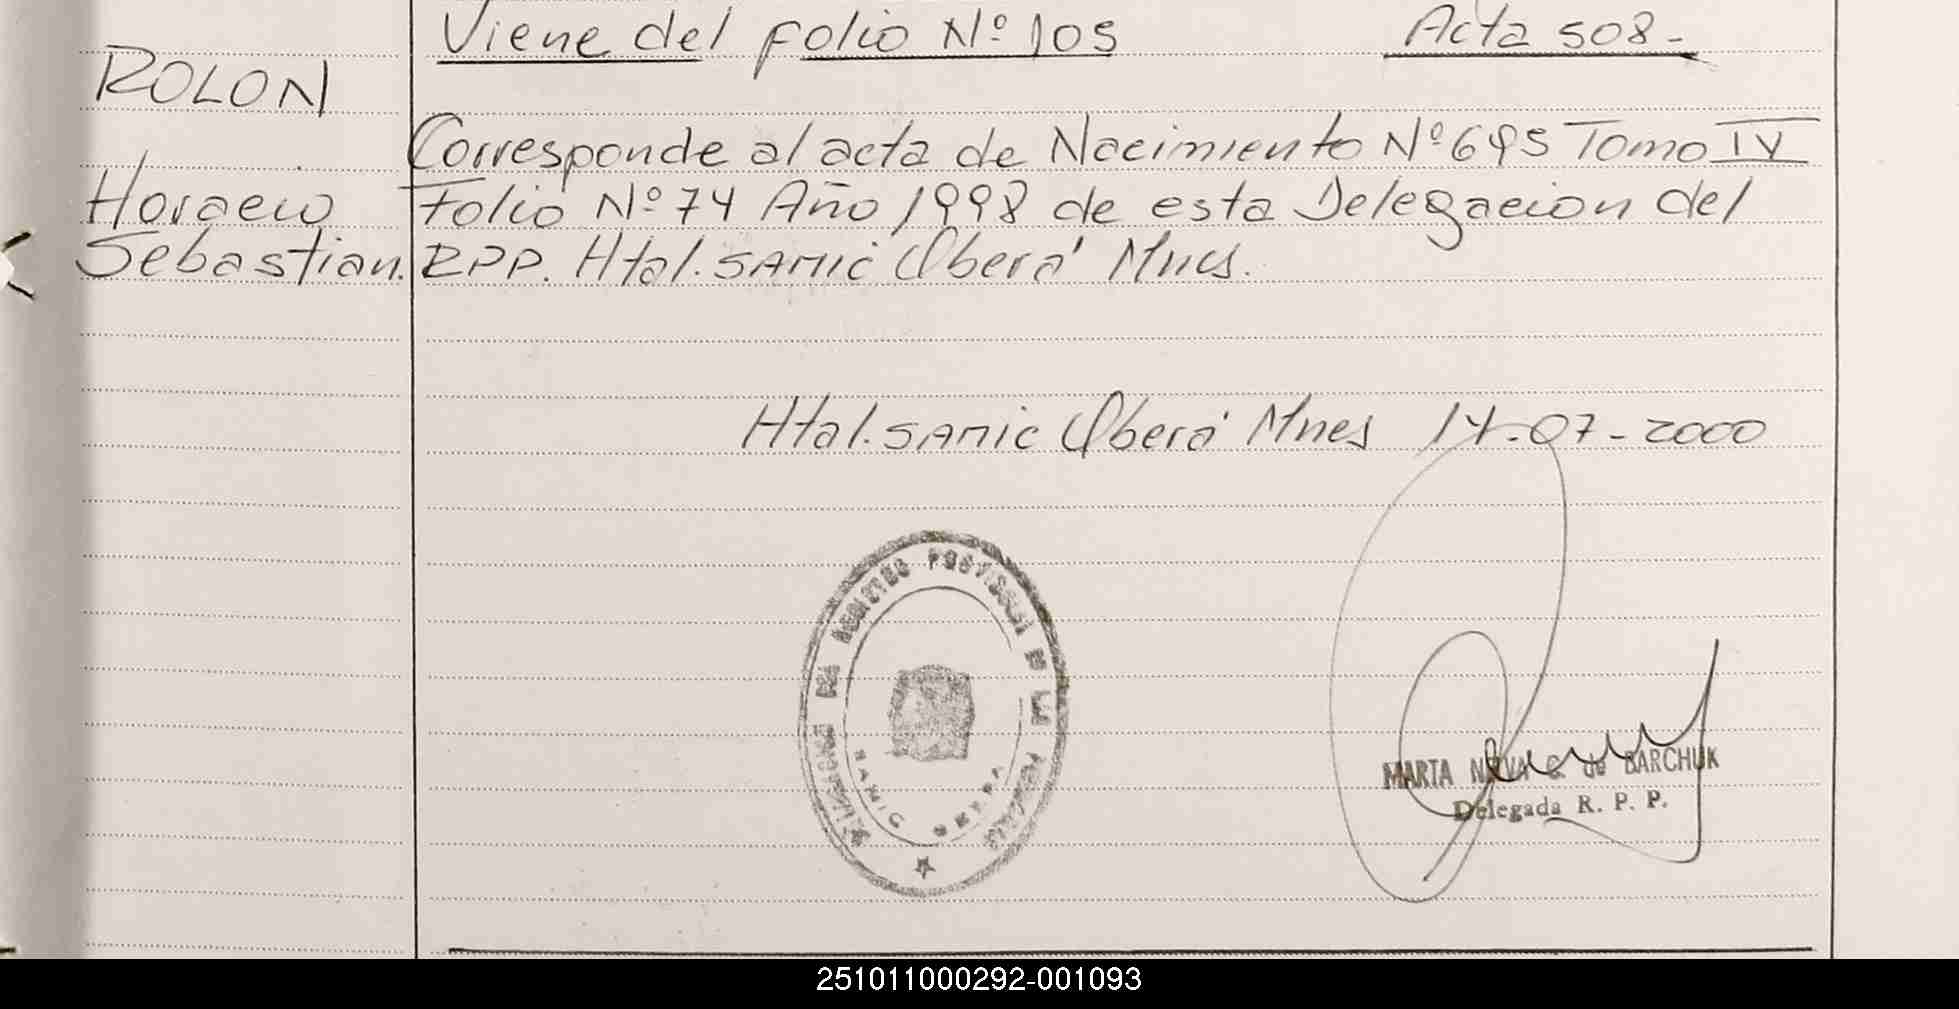 Viene del folio Nº 105 Acta 508-
ROLON
Corresponde al acta de Nacimiento Nº 695 Tomo IV
Horacio
Folio Nº 74 Año 1998 de esta Delegacion del
Sebastian.
RPP. Htal. SAMIC Oberá Mnes.
Htal. SAMIC Oberá Mnes 14-07-2000
DEL REGISTRO PROVINCIAL DE LAS PERSONAS
SAMIC OBERA
MARTA de BARCHUK
Delegada R. P. P.
251011000292-001093